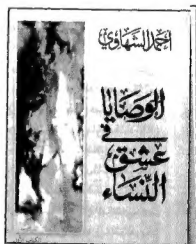 احمد الشهاوي
الوصايا
في
عشق
النساء